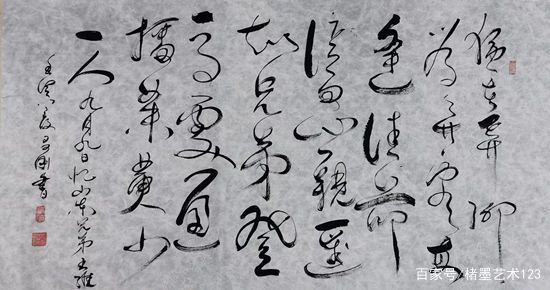 独在异乡
为异客每
逢佳节
倍思亲遥
知兄弟登
高处遍
插茱萸少
一人 九月九日忆山东兄弟王维
壬寅夏书
百家号/楮墨艺术123